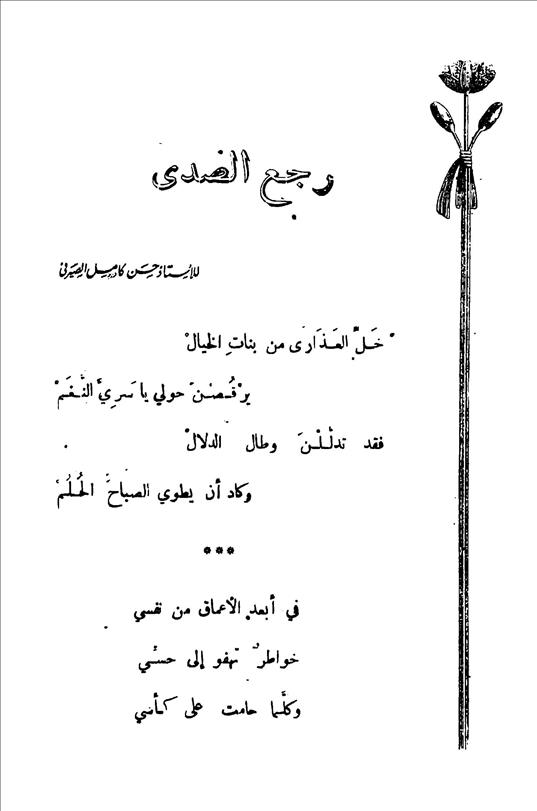 رجع الصدى
للأستاذ حسن كامل الصيرفي
خَلِّ العَذَارى من بنات الخيالْ
يرْقُصْنَ حولي يا سريَّ النَّغَمْ
فقد تدلَّلْنَ وطال الدلالْ
وكاد أن يطوي الصباحُ الحُلُمْ
***
في أبعد الأعماق من نفسي
خواطرٌ تهفو إلى حسِّي
وكلَّما حامت على كأسي